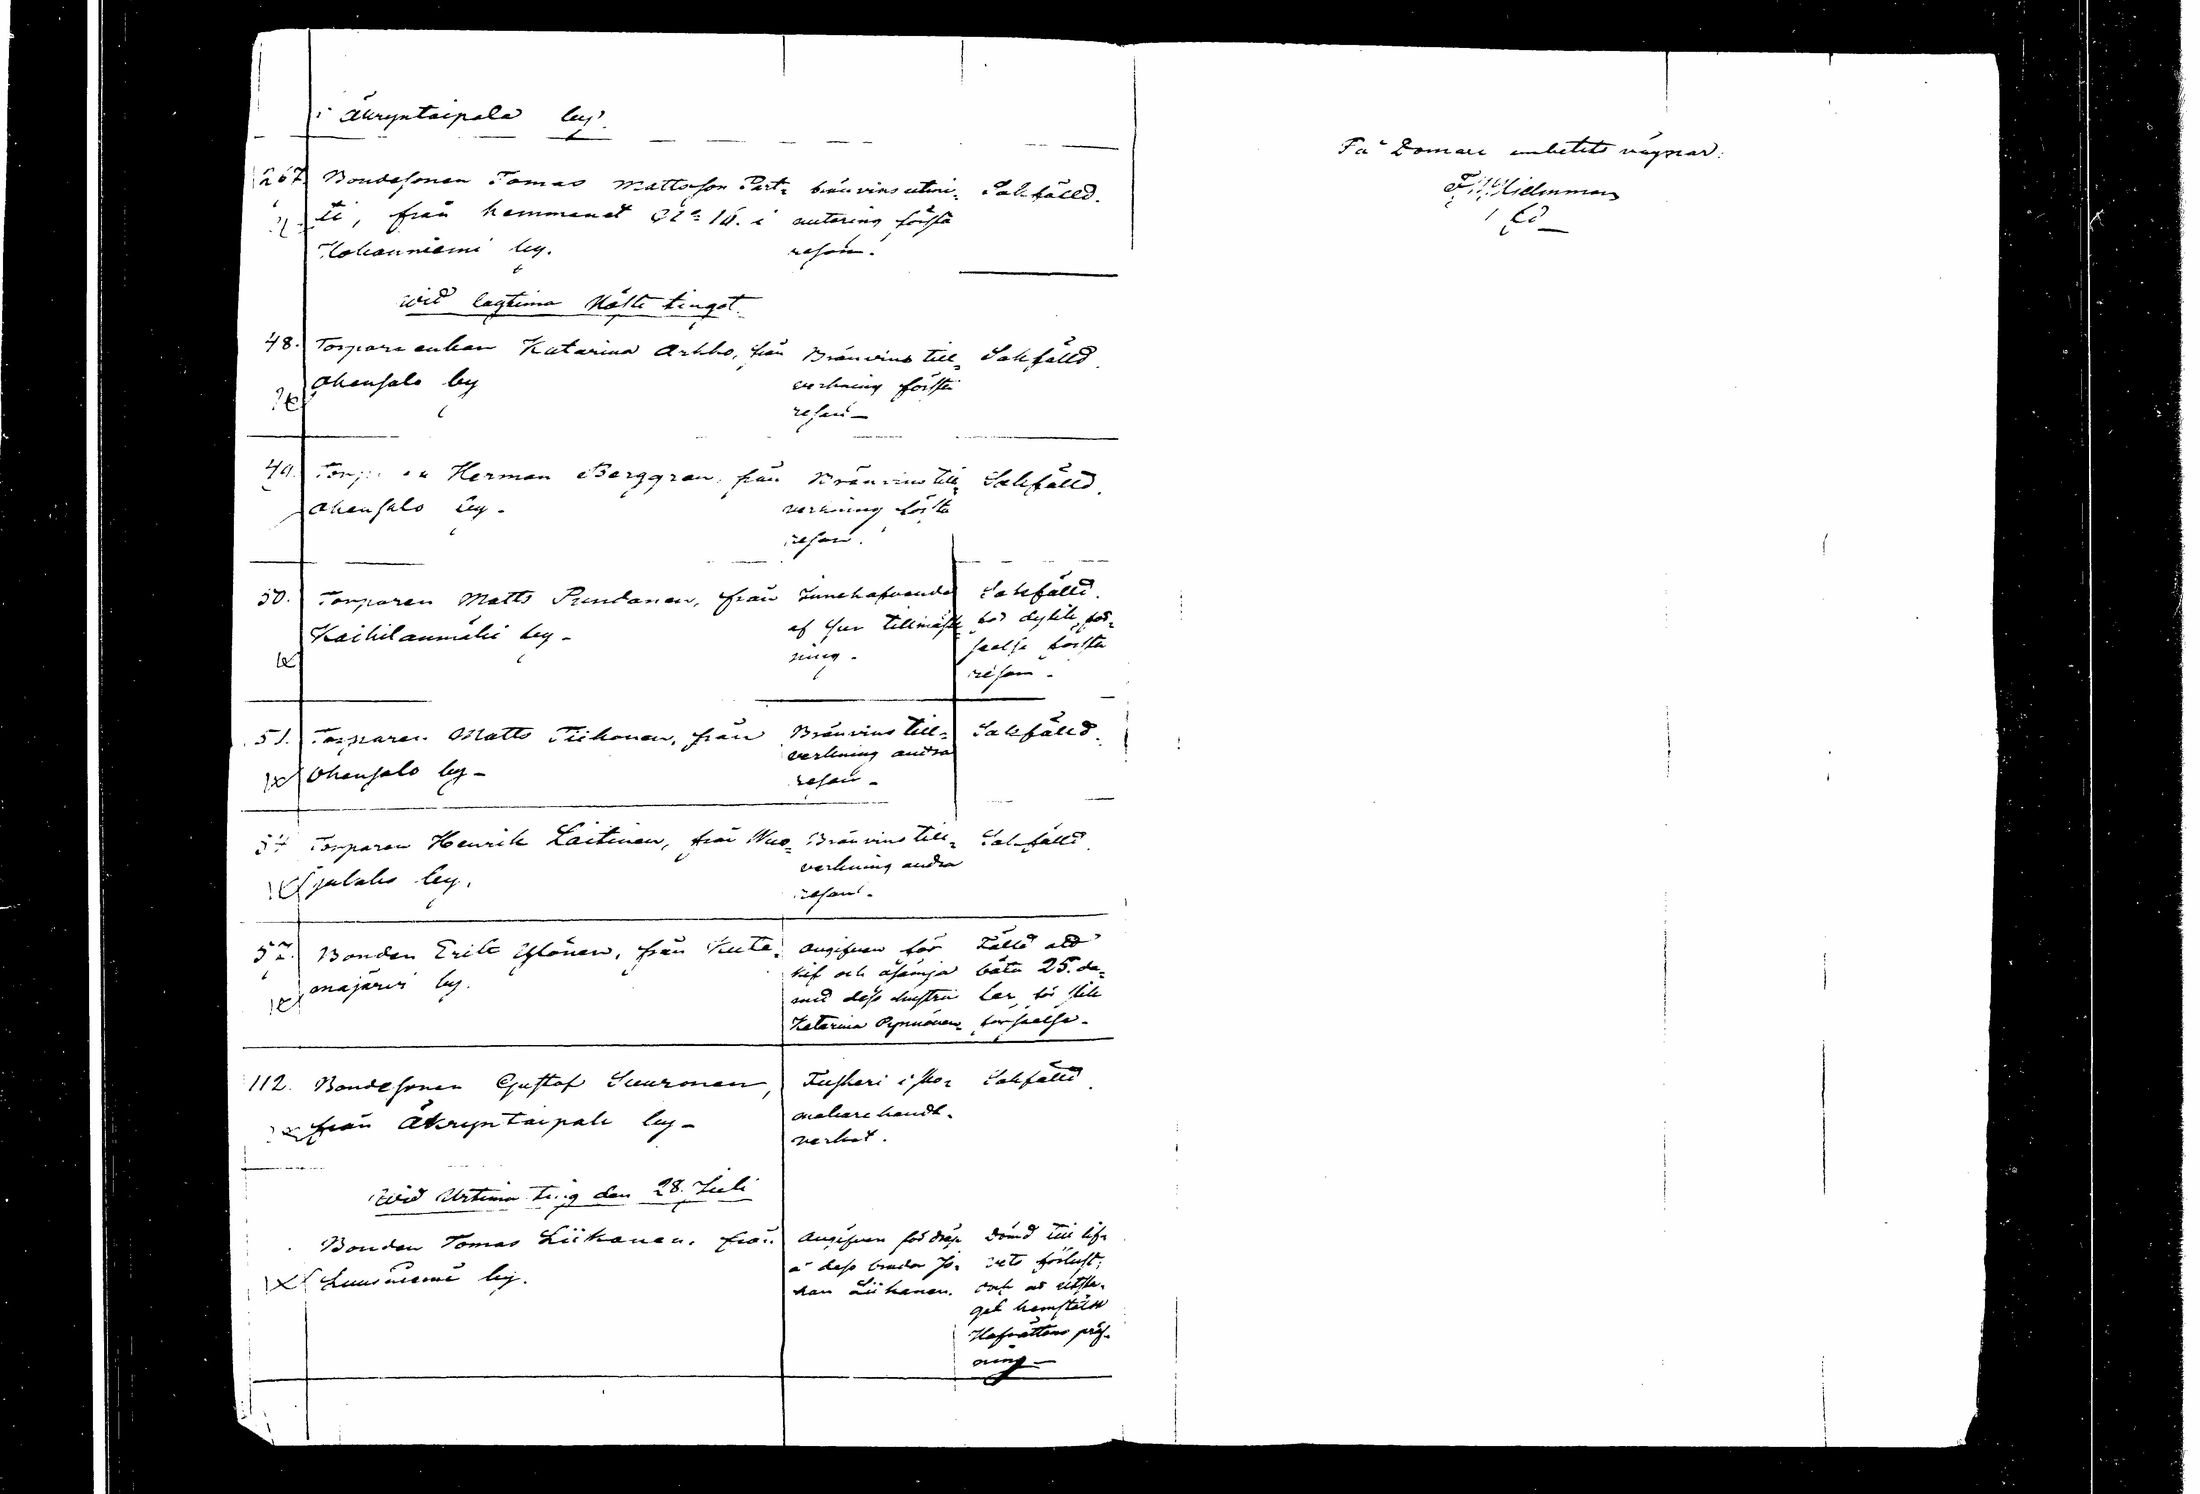 i Äkryntaipale by.
267. Bondesonen Tomas Mattsson Part=
ti, från hemmanet No 16. i
Kokonniemi by.
bränvins utmi=
nutering första
resan.
Sakfälld.
Wid lagtima Höste tinget.
48. Torpare enkan Katarina Arkko, från
Ohensalo by
Bränvins till=
verkning första
resan –
Sakfälld.
49. Torparen Herman Berggren, från
Ohensalo by –
Bränvins till=
verkning första
resan.
Sakfälld.
50. Torparen Matts Pundanen, från
Kaihilanmäki by –
Innehafvande
af ning –
Sakfälld.
för dylik för=
seelse första
resan –
51. Torparen Matts Tiihonen, från
Ohensalo by –
Bränvins till=
verkning andra
resan –
Sakfälld.
54 Torparen Henrik Laitinen, från Wuo=
jalaks by.
Bränvins till=
verkning andra
resan –
Sakfälld.
57. Bonden Erik Ylönen, från Kute=
majärvi by.
Angifven för
kif och osämja
med dess hustru
Katarina Pynnönen.
Fälld att
böta 25. da=
ler, för slik
förseelse –
112. Bondesonen Gustaf Suuronen,
från Äkryntaipale by –
Fuskeri i sko=
makare handt=
verket.
Sakfälld.
Wid Urtima ting den 28. Juli
Bonden Tomas Liikanen, från
Luusniemi by.
Angifven för dråp
å dess broder Jo=
han Liikanen.
Dömd till lif=
vets förlust,
och at utsla=
get hemstäldt
Hofrättens pröf=
ning –
På Domare embetets vägnar: